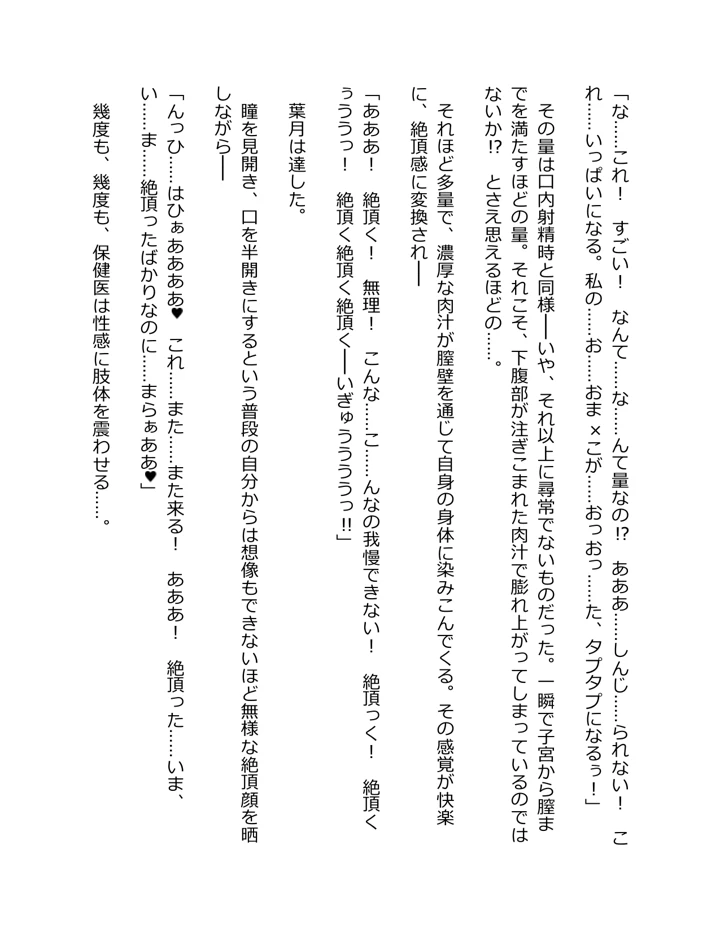 「な……これ！　すごい！　なんて……な……んて量なの!?　あああ……しんじ……られない！　こ
れ……いっぱいになる。私の……お……おま×こが……おっおっ……た、タプタプになるぅ！」
　その量は口内射精時と同様――いや、それ以上に尋常でないものだった。一瞬で子宮から膣ま
でを満たすほどの量。それこそ、下腹部が注ぎこまれた肉汁で膨れ上がってしまっているのでは
ないか!?　とさえ思えるほどの……。
　それほど多量で、濃厚な肉汁が膣壁を通じて自身の身体に染みこんでくる。その感覚が快楽
に、絶頂感に変換され――
「あああ！　絶頂く！　無理！　こんな……こ……んなの我慢できない！　絶頂っく！　絶頂く
ぅううっ！　絶頂く絶頂く絶頂く――いぎゅうううっ!!」
　葉月は達した。
　瞳を見開き、口を半開きにするという普段の自分からは想像もできないほど無様な絶頂顔を晒
しながら――
「んっひ……はひぁああああ♥　これ……また……また来る！　あああ！　絶頂った……いま、
い……ま……絶頂ったばかりなのに……まらぁああ♥」
　幾度も、幾度も、保健医は性感に肢体を震わせる……。